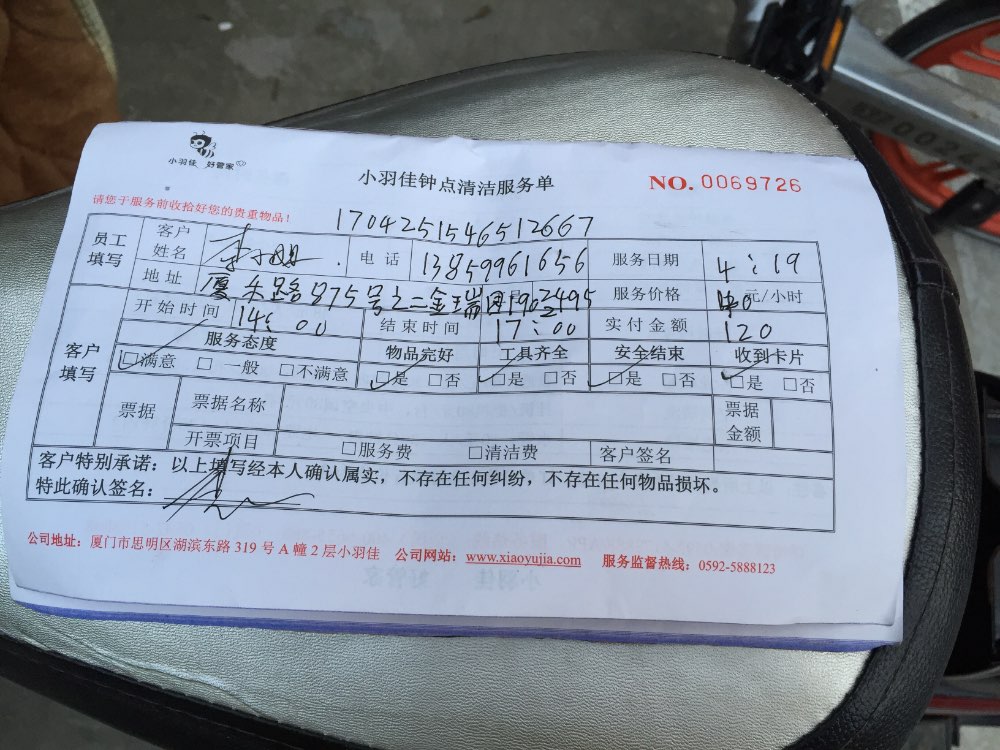 小羽佳 好管家
小羽佳钟点清洁服务单
NO. 0069726
请您于服务前收拾好您的贵重物品！
1704251546512667
员工填写 客户姓名 电话 13859961656 服务日期 4：19
地址 厦禾路875号之二金瑞园1902495 服务价格 40 元/小时
开始时间 14：00 结束时间 17：00 实付金额 120
客户填写 服务态度 物品完好 工具齐全 安全结束 收到卡片
☑满意 □一般 □不满意 ☑是 □否 ☑是 □否 ☑是 □否 ☑是 □否
票据 票据名称 票据金额
开票项目 □服务费 □清洁费 客户签名
客户特别承诺：以上填写经本人确认属实，不存在任何纠纷，不存在任何物品损坏。
特此确认签名：
公司地址：厦门市思明区湖滨东路 319 号 A 幢 2 层小羽佳 公司网站：www.xiaoyujia.com 服务监督热线：0592-5888123